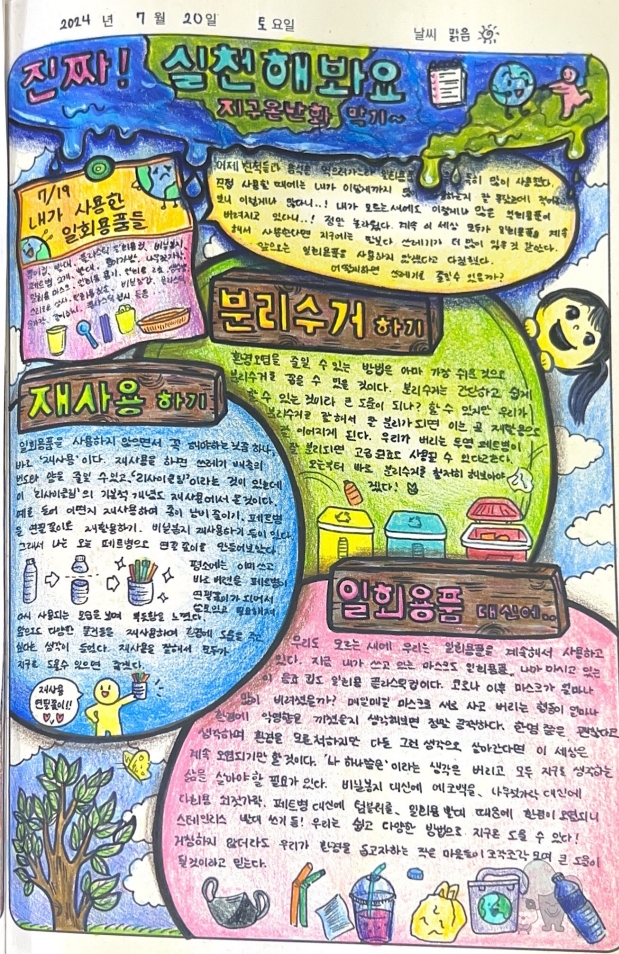 2024 년 7 월 20 일 토 요일
날씨 맑음
진짜! 실천해봐요
지구온난화 막기~
7/19
내가 사용한
일회용품들
어제 친척들과 음식을 먹으러가느라 일회용품 특히 많이 사용했다.
직접 사용할 때에는 내가 이렇게까지 많
보니 이렇게나 많다니..! 내가 모르는새에도 이렇게나 많은 일회용품이
버려지고 있다니..! 정말 놀라웠다. 계속 이 세상 모두가 일회용품을 계속
해서 사용한다면 지구에는 땅보다 쓰레기가 더 많이 있을 것 같았다.
앞으로는 일회용품을 사용하지 않겠다고 다짐했다.
어떻게하면 쓰레기를 줄일수 있을까?
분리수거 하기
환경오염을 줄일 수 있는 방법은 아마 가장 쉬운 것으로
분리수거를 꼽을 수 있을 것이다. 분리수거는 간단하고 쉽게
할 수 있는 것이라 큰 도움이 되나? 할 수 있지만 우리가
분리수거를 잘 해서 잘 분리가 되면 이는 곧 재활용으로
잘 이어지게 된다. 우리가 버리는 투명 페트병이
잘 분리되면 고급 원료로 사용될 수 있다고한다.
오늘부터 바로 분리수거를 철저히 해보아야
겠다!
재사용 하기
일회용품을 사용하지 않으면서 꼭 해야하는 것중 하나,
바로 '재사용' 이다. 재사용을 하면 쓰레기 배출의
빈도와 양을 줄일 수있고, '리사이클링'이라는 것이 있는데
이 '리사이클링'의 기본적 개념도 재사용에서 온것이다.
예를 들어 어떤지 재사용하여 종이 낭비 줄이기, 페트병
을 연필꽂이로 재활용하기, 비닐봉지 재사용하기 등이 있다.
그래서 나는 오늘 페트병으로 연필 꽂이를 만들어보았다.
평소에는 이미 쓰고
바로 버렸을 페트병이
연필꽂이가 되어서
다시 사용되는 모습을 보며 뿌듯함을 느꼈다.
앞으로도 다양한 물건들을 재사용하여 환경에 도움을 주고
싶다는 생각이 들었다. 재사용을 잘해서 모두가
지구를 도울수 있으면 좋겠다.
재사용
연필꽂이!!
일회용품 대신에..
우리도 모르는 새에 우리는 일회용품을 계속해서 사용하고
있다. 지금 내가 쓰고 있는 마스크도 일회용품, 내가 마시고 있는
이 음료 컵도 일회용 플라스틱컵이다. 코로나 이후 마스크가 얼마나
많이 버려졌을까? 매일매일 마스크를 써도 사고 버리는 행동이 얼마나
환경에 악영향을 끼쳤을지 생각해보면 정말 끔찍하다. 한명 쯤은 괜찮다고
생각하며 환경을 모른척하지만 다들 그런 생각으로 살아간다면 이 세상은
계속 오염되기만 할것이다. '나 하나쯤은' 이라는 생각은 버리고 모두 지구를 생각하는
삶을 살아야 할 필요가 있다. 비닐봉지 대신에 에코백을, 나무젓가락 대신에
다회용 쇠젓가락, 페트병 대신에 텀블러를, 일회용 빨대 때문에 환경이 오염되니
스테인리스 빨대 쓰기 등! 우리는 쉽고 다양한 방법으로 지구를 도울 수 있다!
거창하지 않더라도 우리가 환경을 보고자하는 작은 마음들이 조각조각 모여 큰 도움이
될것이라고 믿는다.